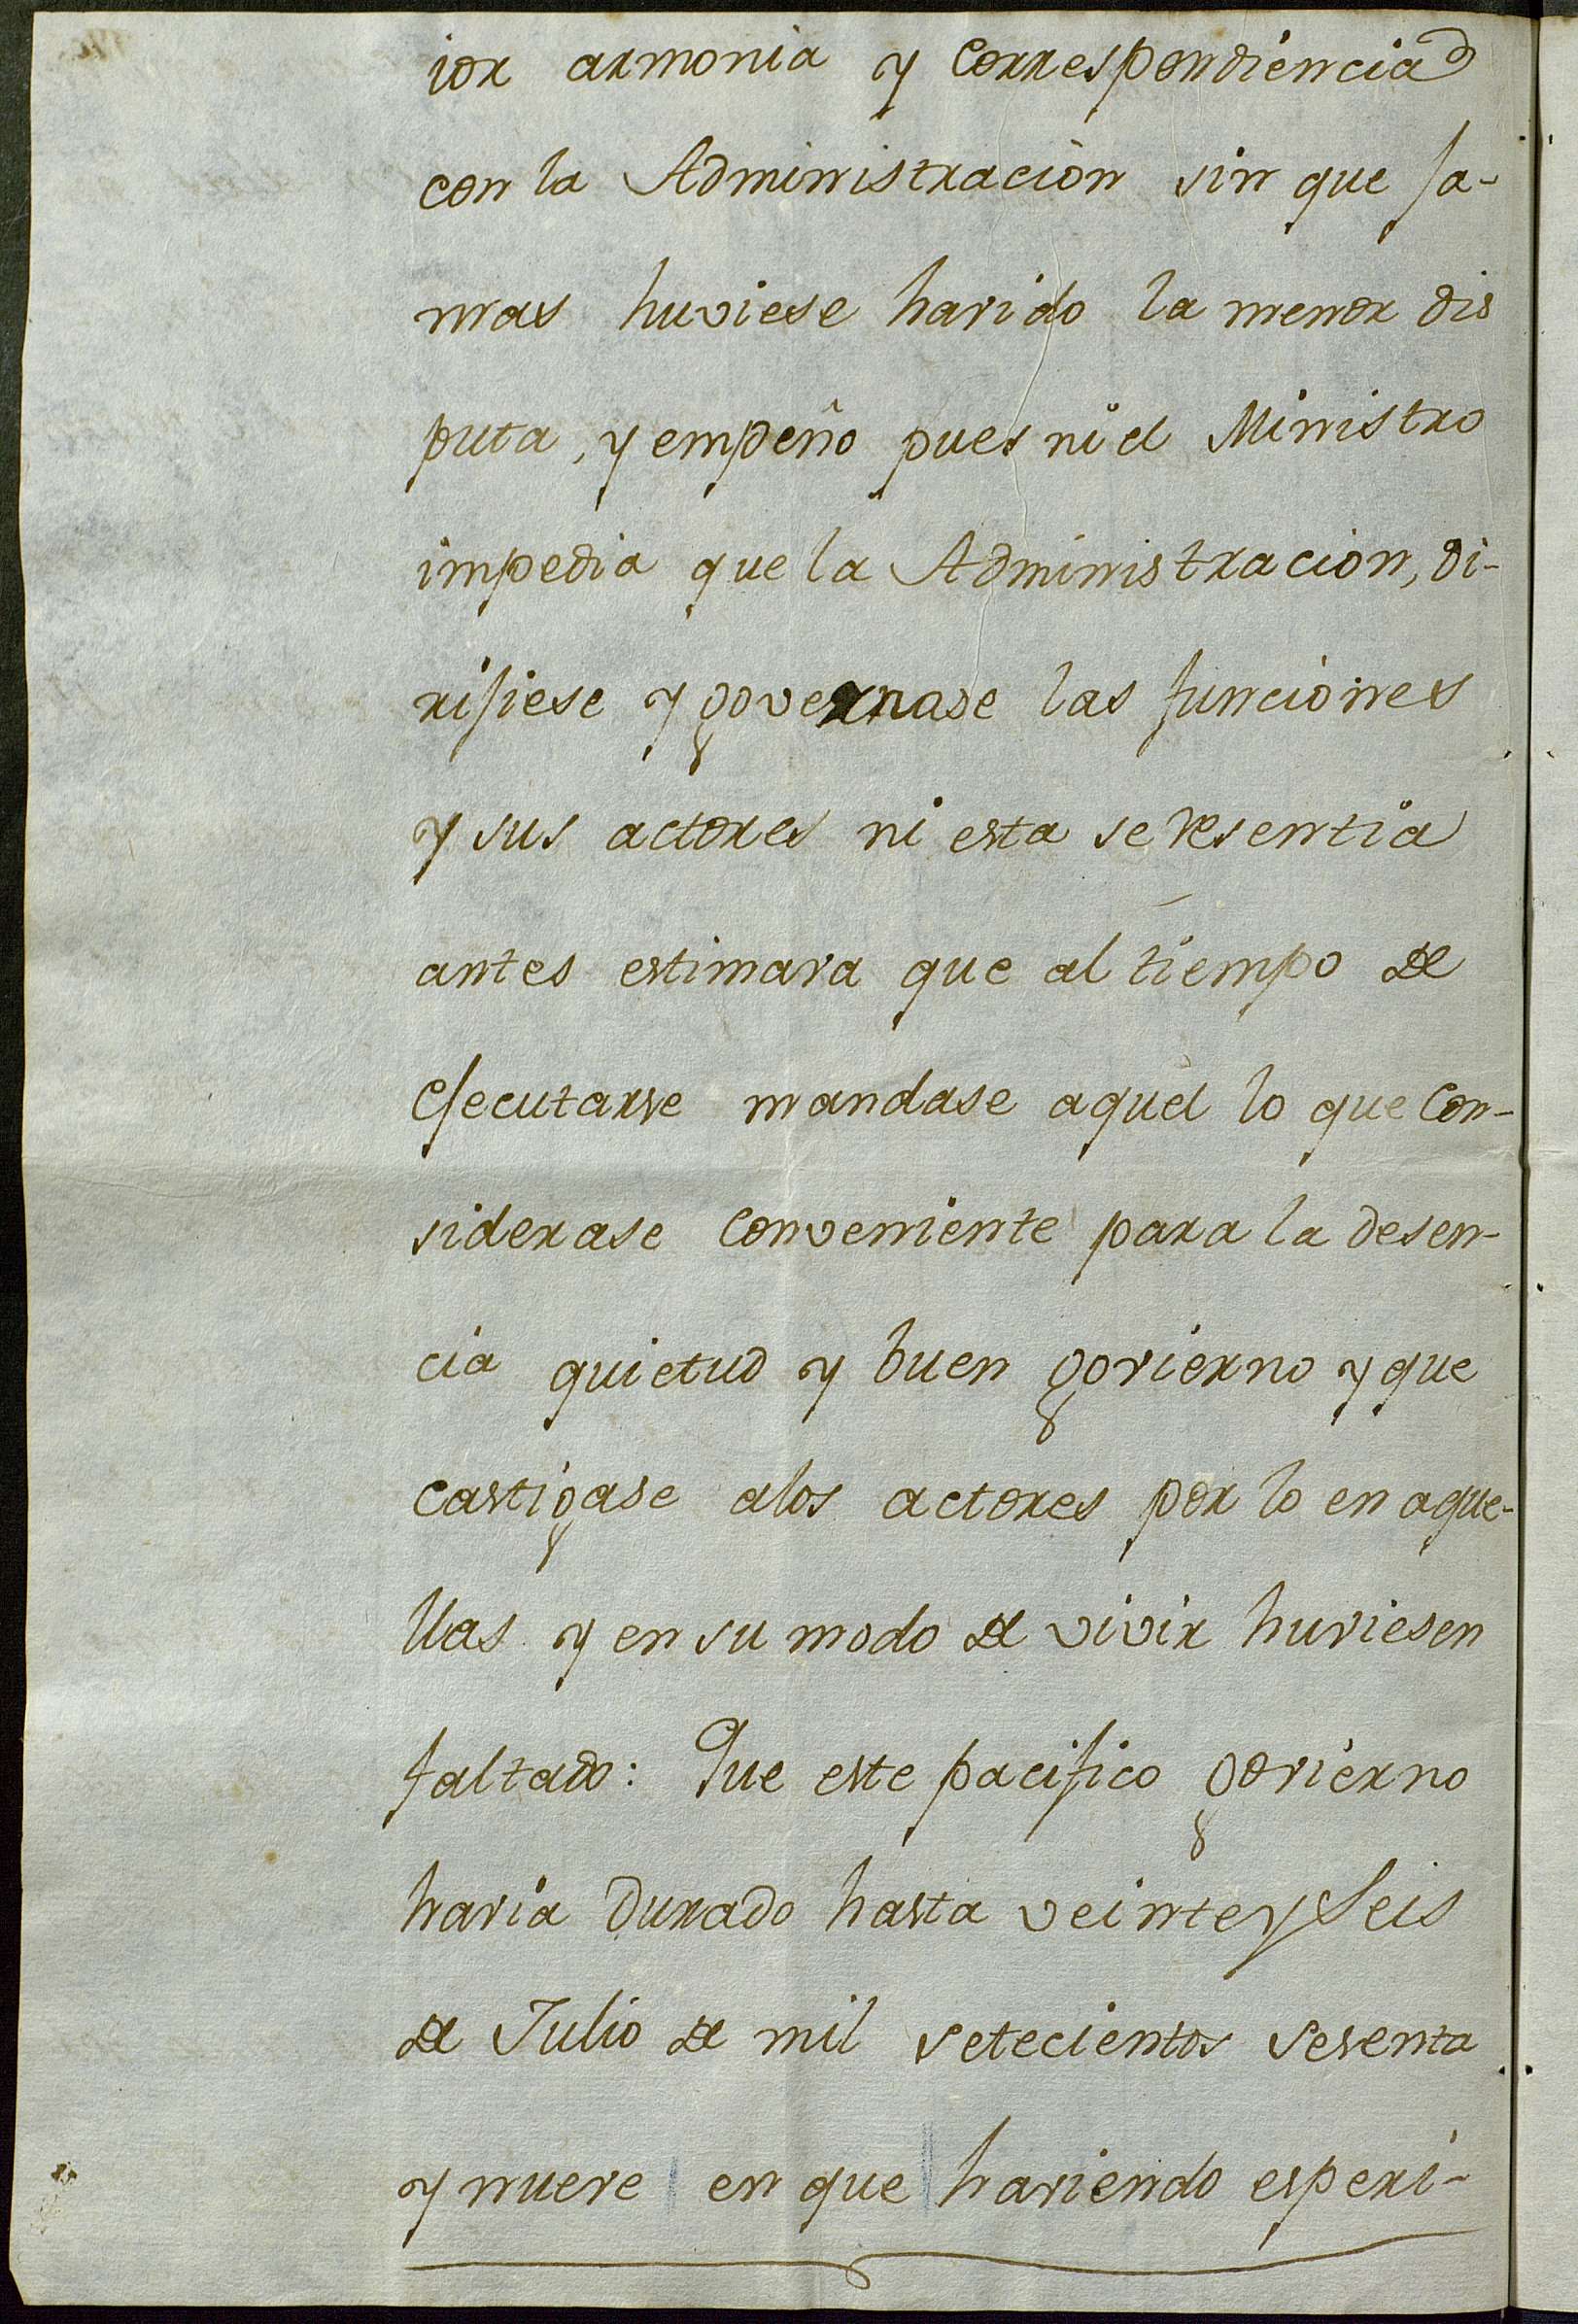 ior armonia y correspondiencia
con la Administraciòn sin que ja-
mas huviese havido la menor dis
puta, y empeño pues ni el Ministro
impedia que la Administracion, di-
rijiese y governase las funciones
y sus actores ni esta se resentia
antes estimava que al tiempo de
ejecutarse mandase aquel lo que Con-
siderase Conveniente para la desen-
cia quietud y buen govierno y que
castigase alos actores por lo en aque-
llas y en su modo de vivir huviesen
faltado: Que este pacifico govierno
havia durado hasta veinte y Seis
de Julio de mil setecientos sesenta
y nueve en que haviendo esperi-